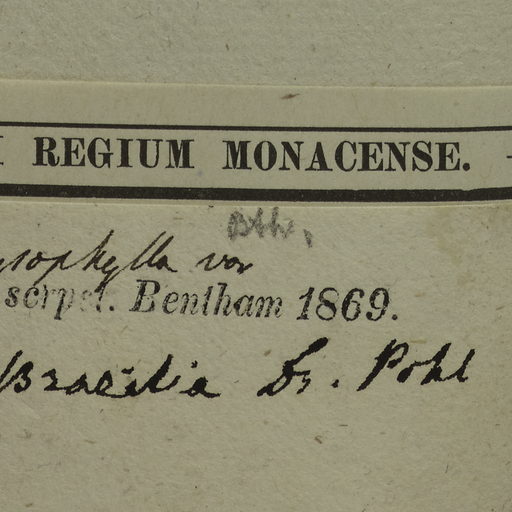 REGIUM MONACENSE.
Bth.
ysophylla var
scrpst. Bentham 1869.
Brasilia Dr. Pohl